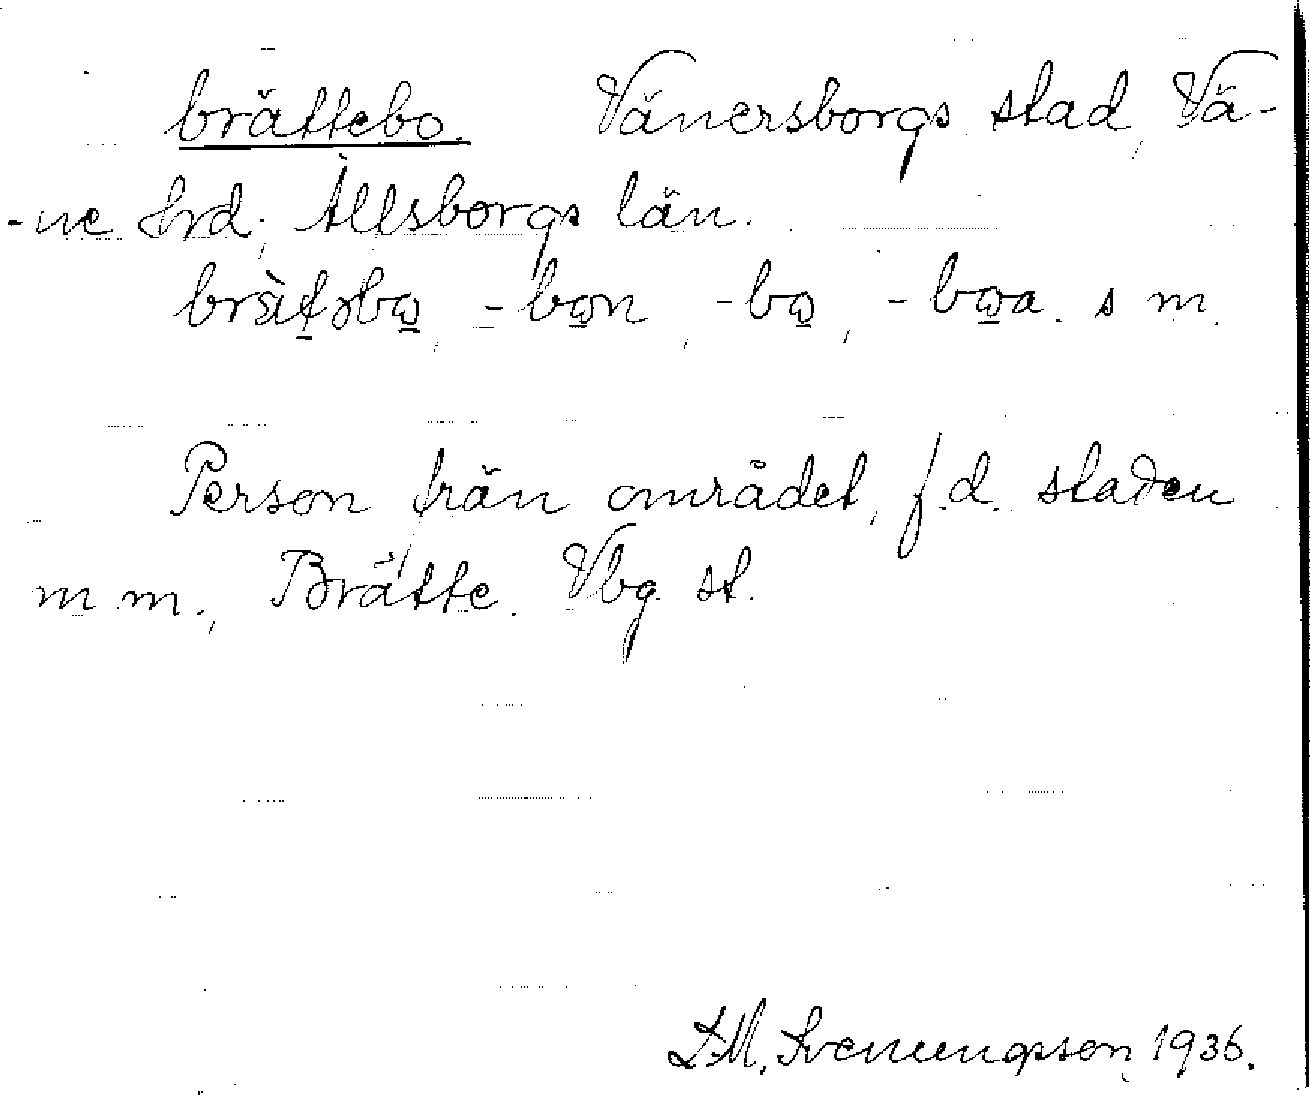 brättebo. Vänersborgs stad, Vä-
-ne hrd; Älvsborgs län.
-bon, -bo, -boa. s m.
Person från området, f.d. staden
m m., Brätte. Vbg st.
Svenungsson, 1936.